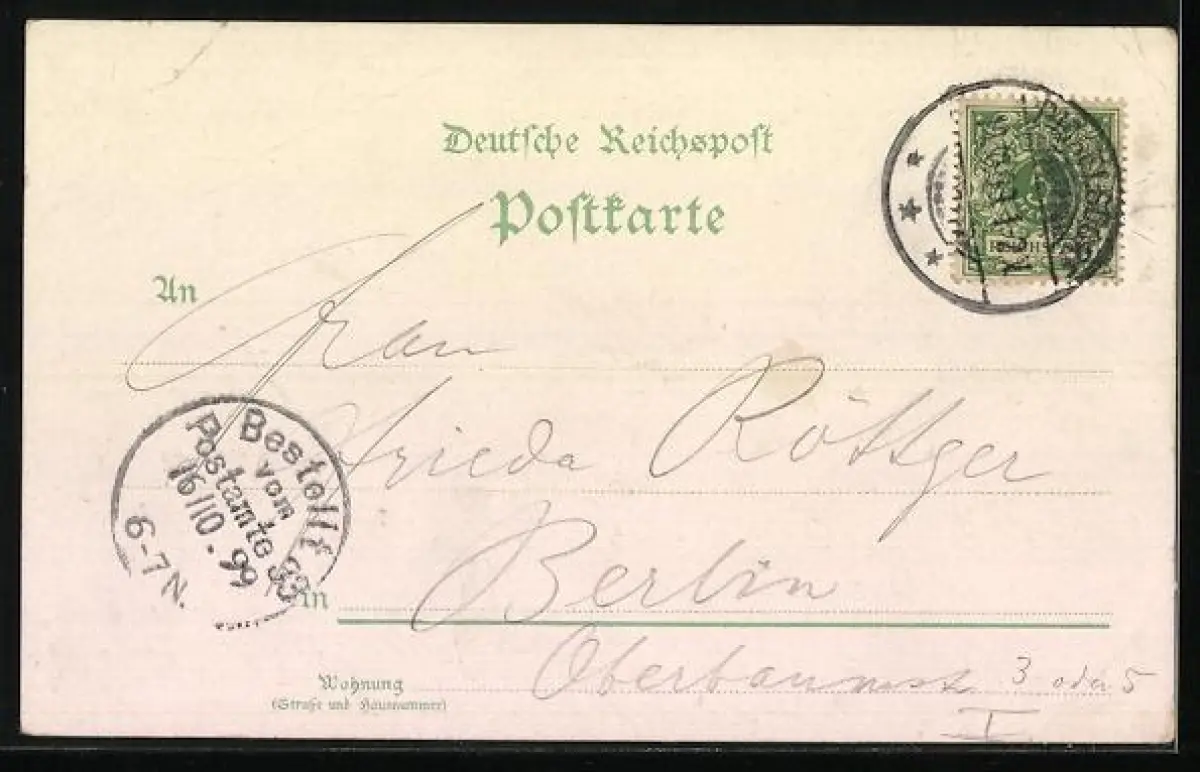 Deutsche Reichspost
Postkarte
An
Frau
Frieda Röttger
Bestellt
vom
Postamte 33
16/10.99
6-7N.
In Berlin
Wohnung
(Straße und Hausnummer)
Oberbaumstr 3 oder 5
I